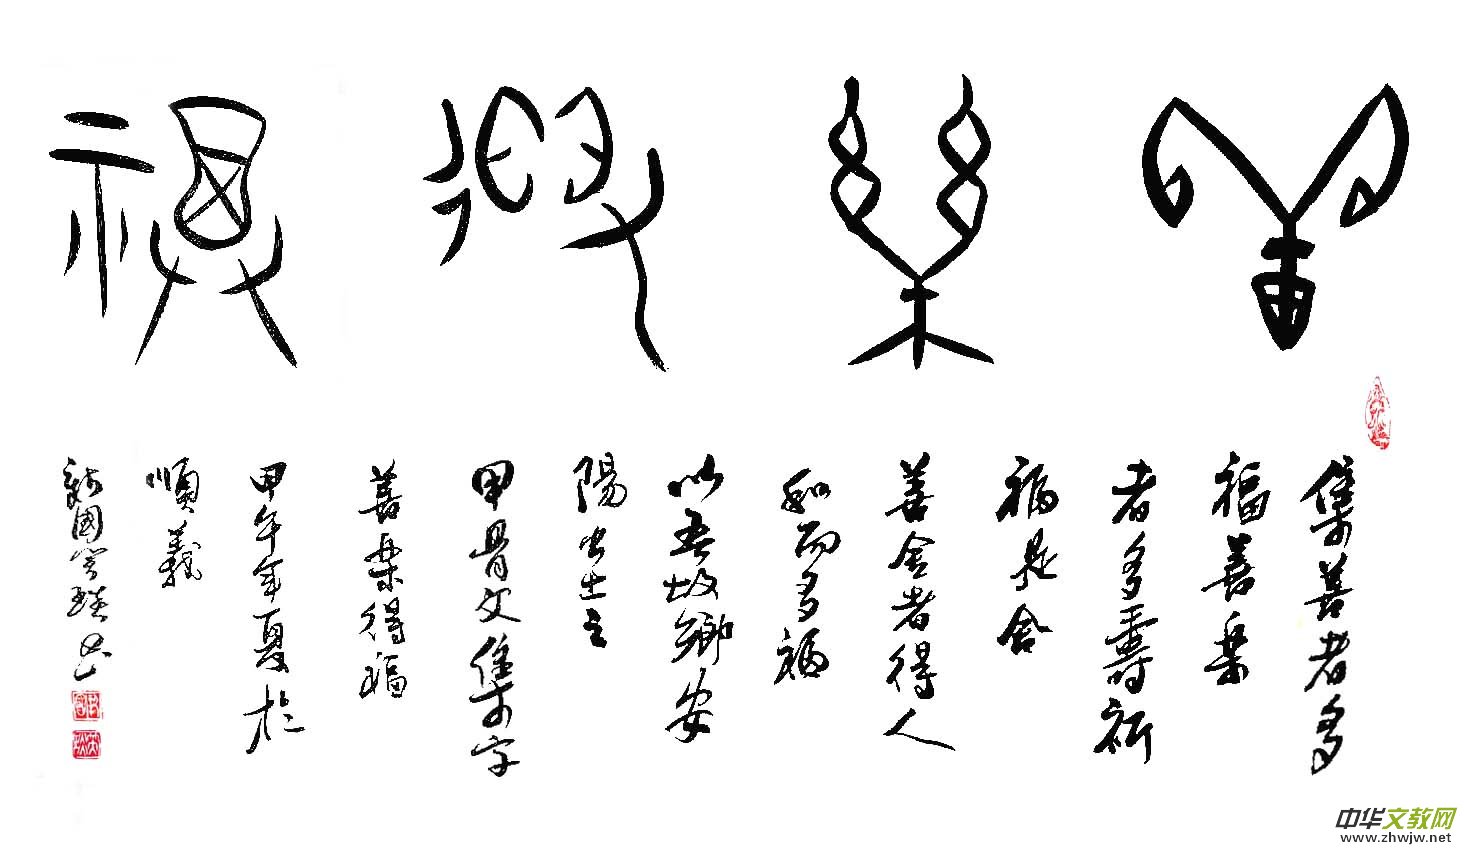 善樂得福
集善者多
福善樂
者多壽祈
福是舍
善舍者得人
和而多福
以吾故鄉安
陽出土之
甲骨文集字
善樂得福
甲午年夏於
順義
國
中华文教网
www.zhwjw.net